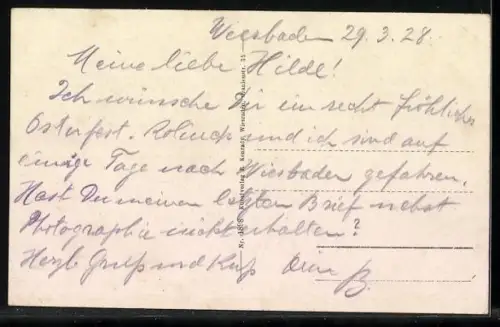 Wiesbaden 29.3.28.
Meine liebe Hilde!
Ich wünsche Dir ein recht fröhliches
Osterfest. und ich sind auf
einige Tage nach Wiesbaden gefahren.
Hast Du meinen letzten Brief nebst
Photographie nicht erhalten?
Herzl. Gruß und Kuß Dein
Kunstverlag H. Konrady, Wiesbaden